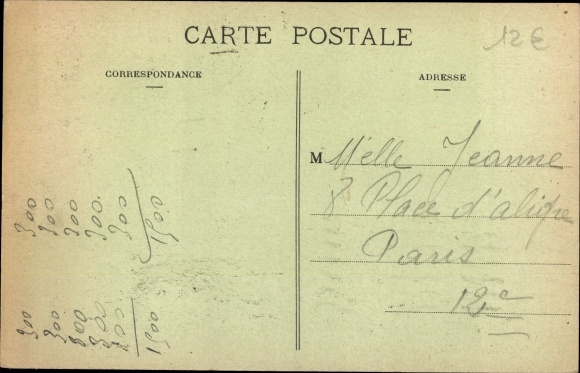 CARTE POSTALE
12 €
CORRESPONDANCE
ADRESSE
M Melle Jeanne
8 Place d'aligre
Paris
12e
300
300
300
300
300
1500
300
300
300
300
300
1500